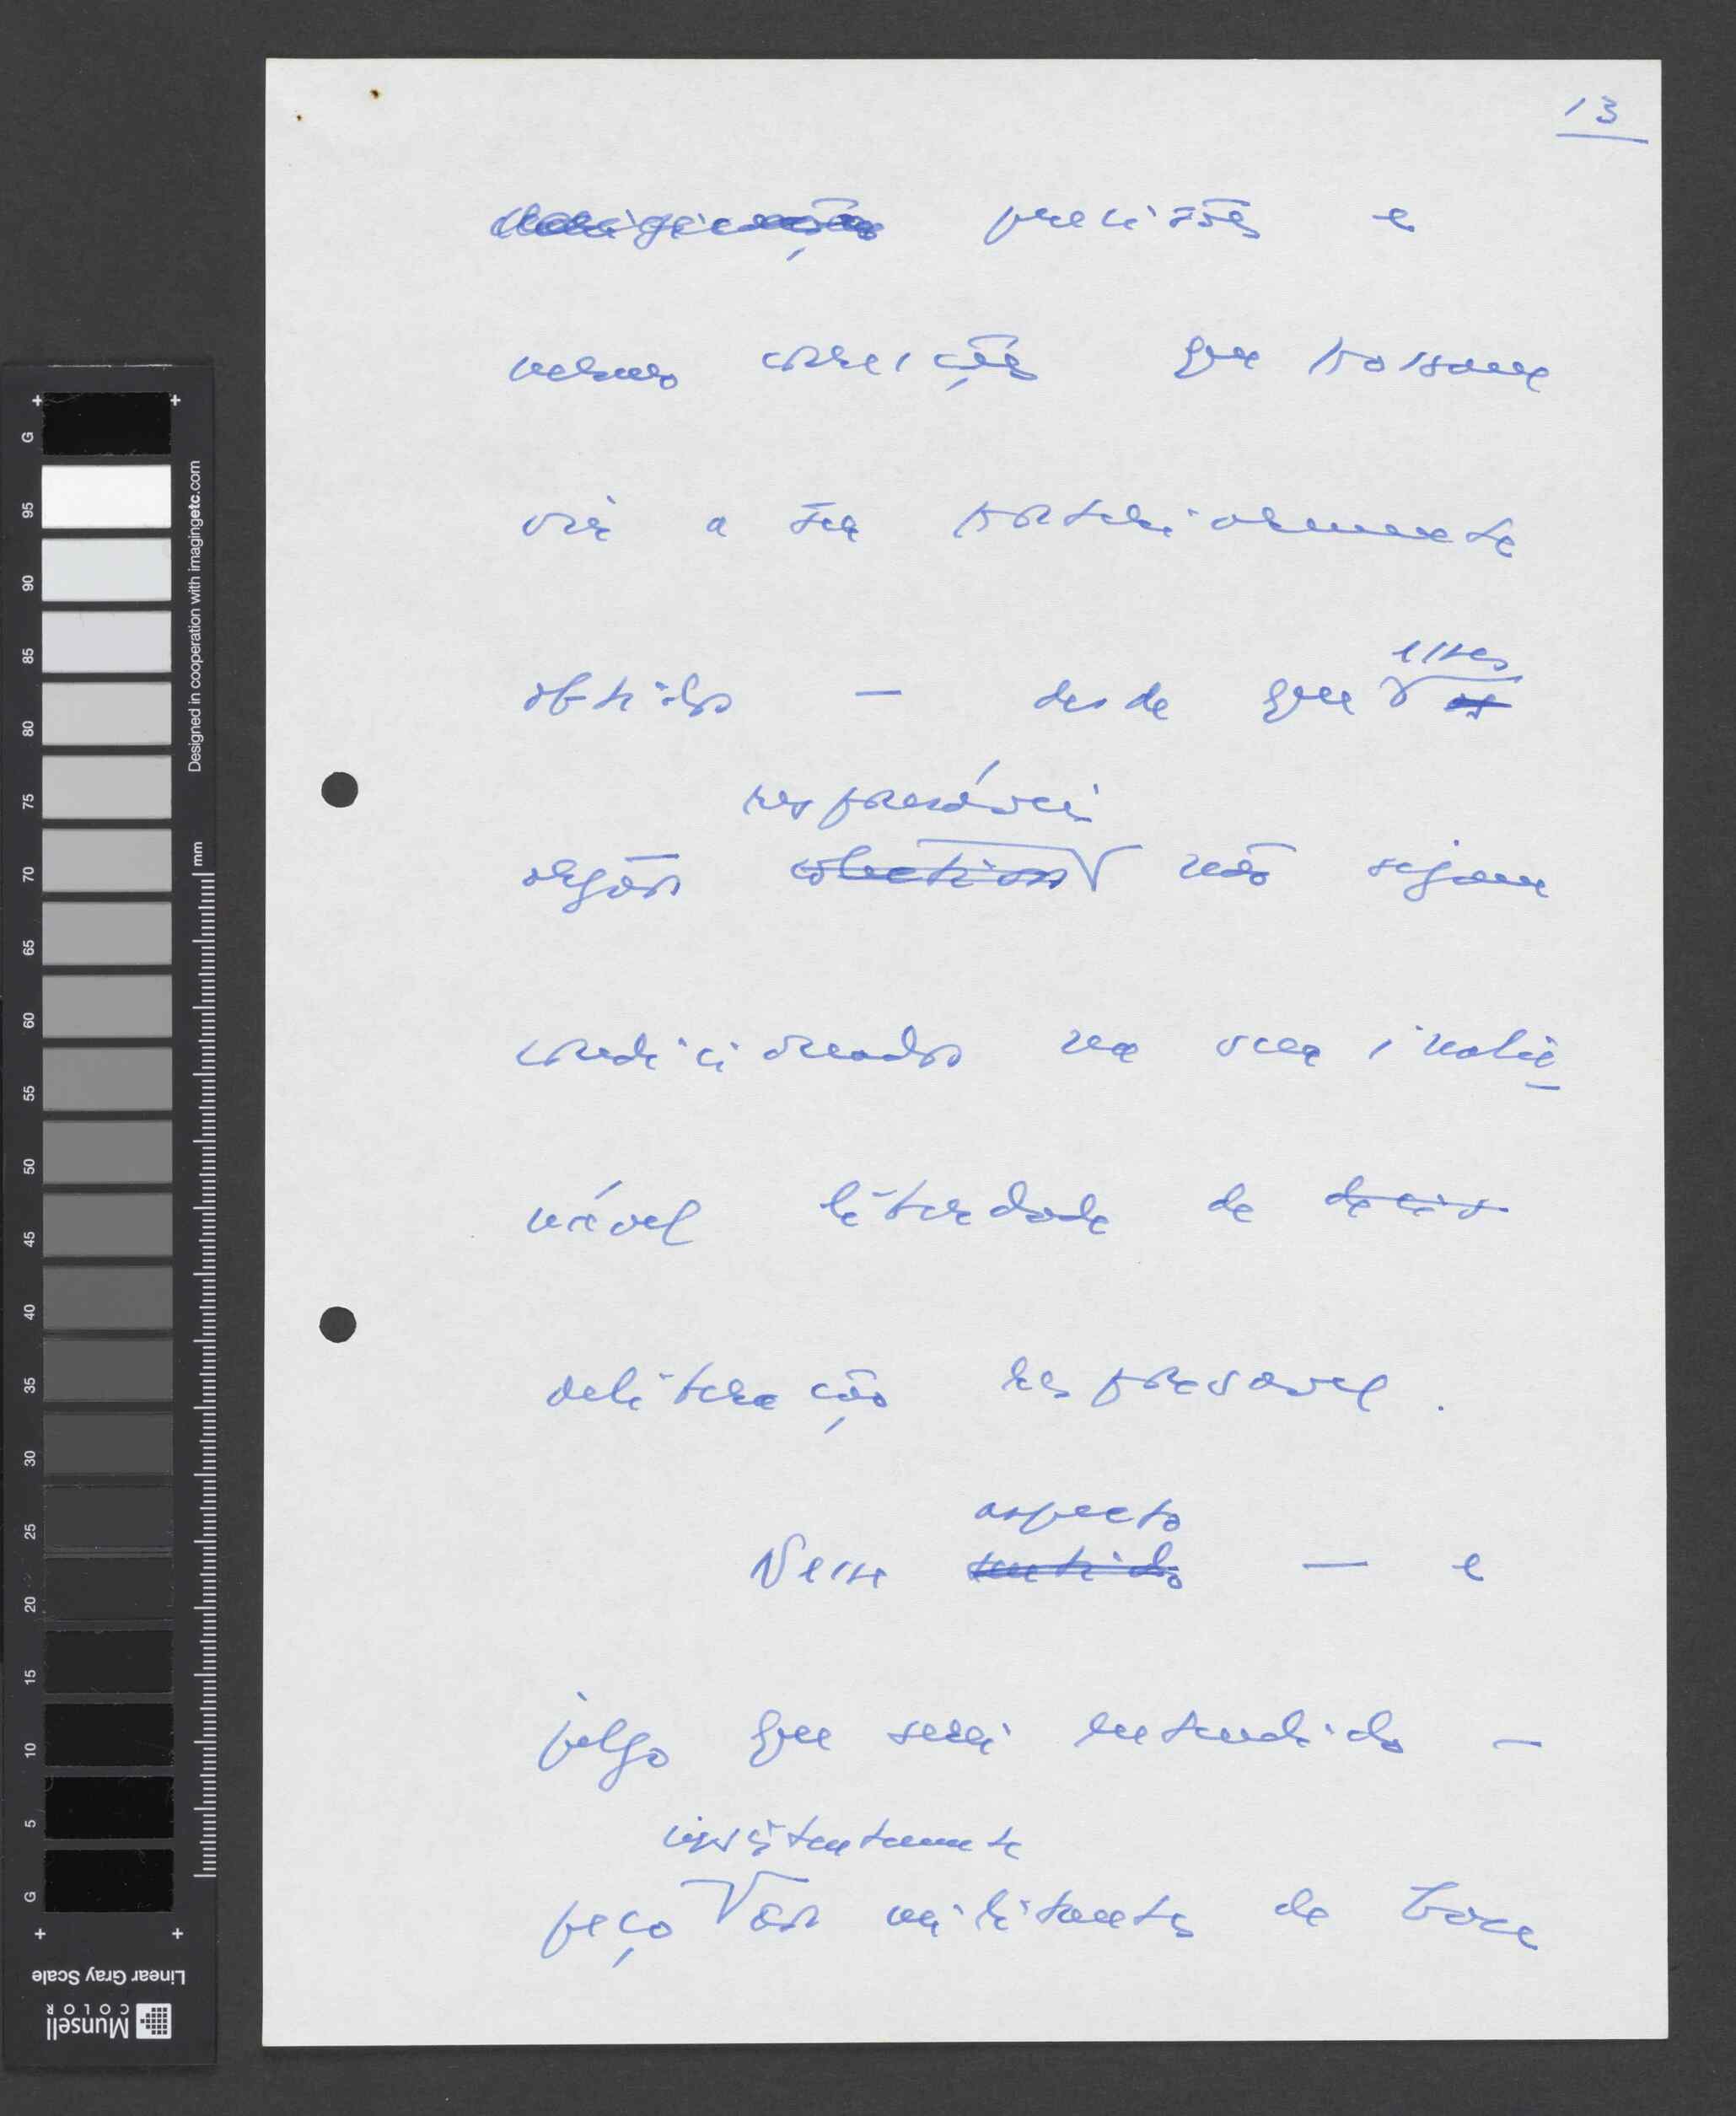 13
precisões e
mesmo correcções que possam
vir a ser posteriormente
obtidos — desde que
esses
os
responsáveis
orgãos colectivos não sejam
condicionados na sua inalie-
nável liberdade de decisão
deliberação responsavel.
aspecto
Nesse sentido — e
julgo que serei entendido —
insistentemente
peço aos militantes de base
G
95
90
85
80
75
70
65
60
55
50
45
40
35
30
25
20
15
10
5
G
mm
Designed in cooperation with imagingetc.com
Linear Gray Scale
Munsell
COLOR